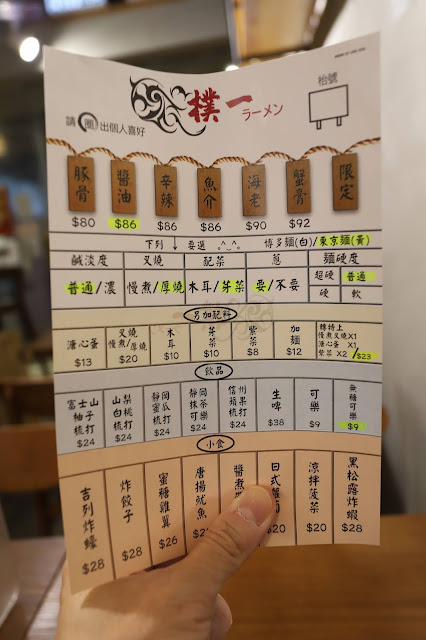 枱號
樸一
ラーメン
請圈出個人喜好
豚骨 醬油 辛辣 魚介 海老 蟹膏 限定
$80 $86 $86 $86 $90 $92
下列↓要選 博多麵(白)/東京麵(黃)
鹹淡度 叉燒 配菜 蔥 麵硬度
普通/濃 慢煮/厚燒 木耳/芽菜 要/不要 超硬 普通
硬 軟
另加配料
溏心蛋 $13
叉燒 慢煮/厚燒 $20
木耳 $10
芽菜 $10
紫菜 $8
加麵 $12
樸特上 慢煮叉燒X1 溏心蛋 X1 紫菜 X2 /$23
飲品
富士山柚子梳打 $24
山梨白桃梳打 $24
靜岡蜜瓜梳打 $24
靜岡抹茶可樂 $24
信州蘋果梳打 $24
生啤 $38
可樂 $9
無糖可樂 $9
小食
吉列炸蠔 $28
炸餃子 $28
蜜糖雞翼 $26
唐揚魷魚
醬煮
日式 $20
涼拌菠菜 $20
黑松露炸蝦 $28